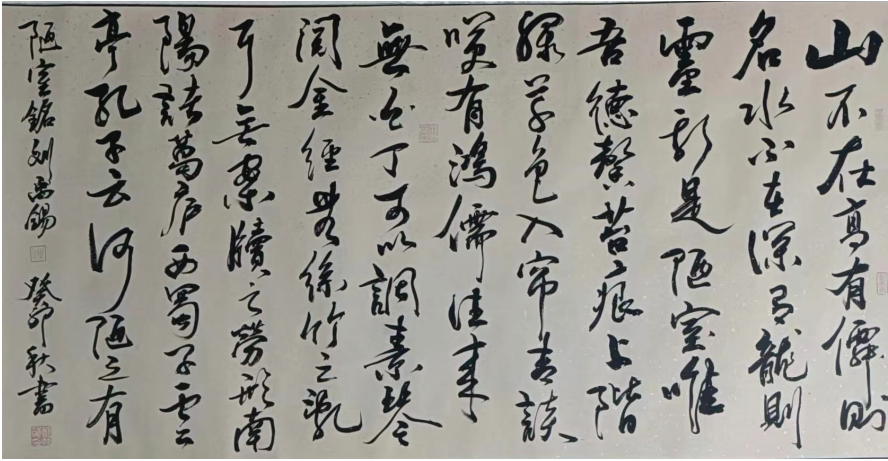 山不在高有僊則
名水不在深有龍則
靈斯是陋室唯
吾德馨苔痕上階
綠草色入帘青談
咲有鴻儒往来
無白丁可以調素琴
閱金經無絲竹之亂
耳无案牘之勞形南
陽諸葛庐西蜀子雲
亭孔子云何陋之有
陋室銘刘禹錫 癸卯秋書